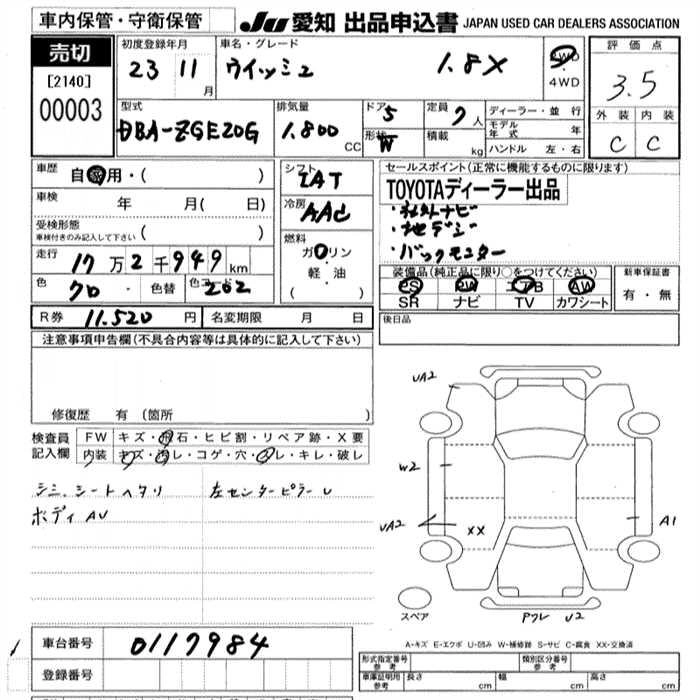 車内保管・守衛保管
JU 愛知 出品申込書 JAPAN USED CAR DEALERS ASSOCIATION
売切
[2140]
00003
初度登録年月
23 11月
車名・グレード
ウイッシュ 1.8X
2WD・4WD
評価点
3.5
外装 内装
C C
型式
DBA-ZGE20G
排気量
1.800 CC
ドア 5
形状 W
定員 7人
積載 kg
ディーラー・並行
モデル年式 年
ハンドル 左・右
車歴 自家用・( )
車検 年 月( 日)
受検形態
車検付きのみ記入して下さい ( )
走行 17万2千949km
色 クロ・色替 色コード 202
シフト
IAT
冷房
AAC
燃料
ガソリン
軽・油
( )
セールスポイント(正常に機能するものに限ります)
TOYOTAディーラー出品
・社外ナビ
・地デジ
・バックモニター
装備品(純正品に限り○をつけてください)
PS PW エアB AW
SR ナビ TV カワシート
新車保証書
有・無
R券 11.520円 名変期限 月 日
後日品
注意事項申告欄(不具合内容等は具体的に記入して下さい)
修復歴 有(箇所 )
検査員記入欄
FW キズ・飛石・ヒビ割・リペア跡・X要
内装 キズ・汚レ・コゲ・穴・スレ・キレ・破レ
シミ、シートヘタリ 左センターピラーU
ボディAU
UA2
W2
UA2
XX
A1
スペア
Pクレ U2
A-キズ E-エクボ U-凹み W-補修跡 S-サビ C-腐食 XX-交換済
車台番号 0117984
登録番号
形式指定番号 参考
類別区分番号 参考
車庫証明用 参考 長さ cm 幅 cm 高さ cm